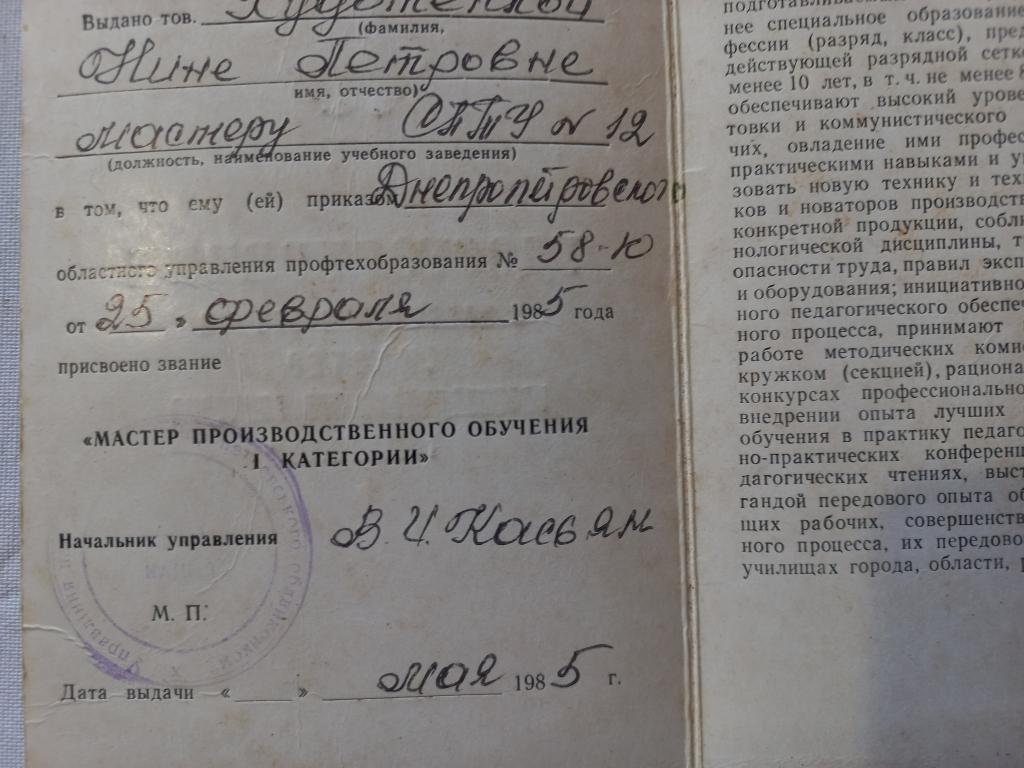 Выдано тов.
(фамилия,
Нине Петровне
имя, отчество)
мастеру СПТУ № 12
(должность, наименование учебного заведения)
в том, что ему (ей) приказом Днепропетровского
областного управления профтехобразования № 58-к
от 25 » февраля 1985 года
присвоено звание
«МАСТЕР ПРОИЗВОДСТВЕННОГО ОБУЧЕНИЯ
I КАТЕГОРИИ»
Начальник управления В. И. Касьян
М. П.
Дата выдачи « » мая 1985 г.
нее специальное образование
фессии (разряд, класс), пред
действующей разрядной сетк
менее 10 лет, в т. ч. не менее 8
обеспечивают высокий урове
товки и коммунистического
чих, овладение ими профес
практическими навыками и у
зовать новую технику и техн
ков и новаторов производств
конкретной продукции, соблю
нологической дисциплины, т
опасности труда, правил эксп
и оборудования; инициативно
ного педагогического обеспеч
ного процесса, принимают
работе методических коми
кружком (секцией), рациона
конкурсах профессионально
внедрении опыта лучших
обучения в практику педаго
но-практических конференц
дагогических чтениях, выст
гандой передового опыта об
щих рабочих, совершенств
ного процесса, их передово
училищах города, области, р